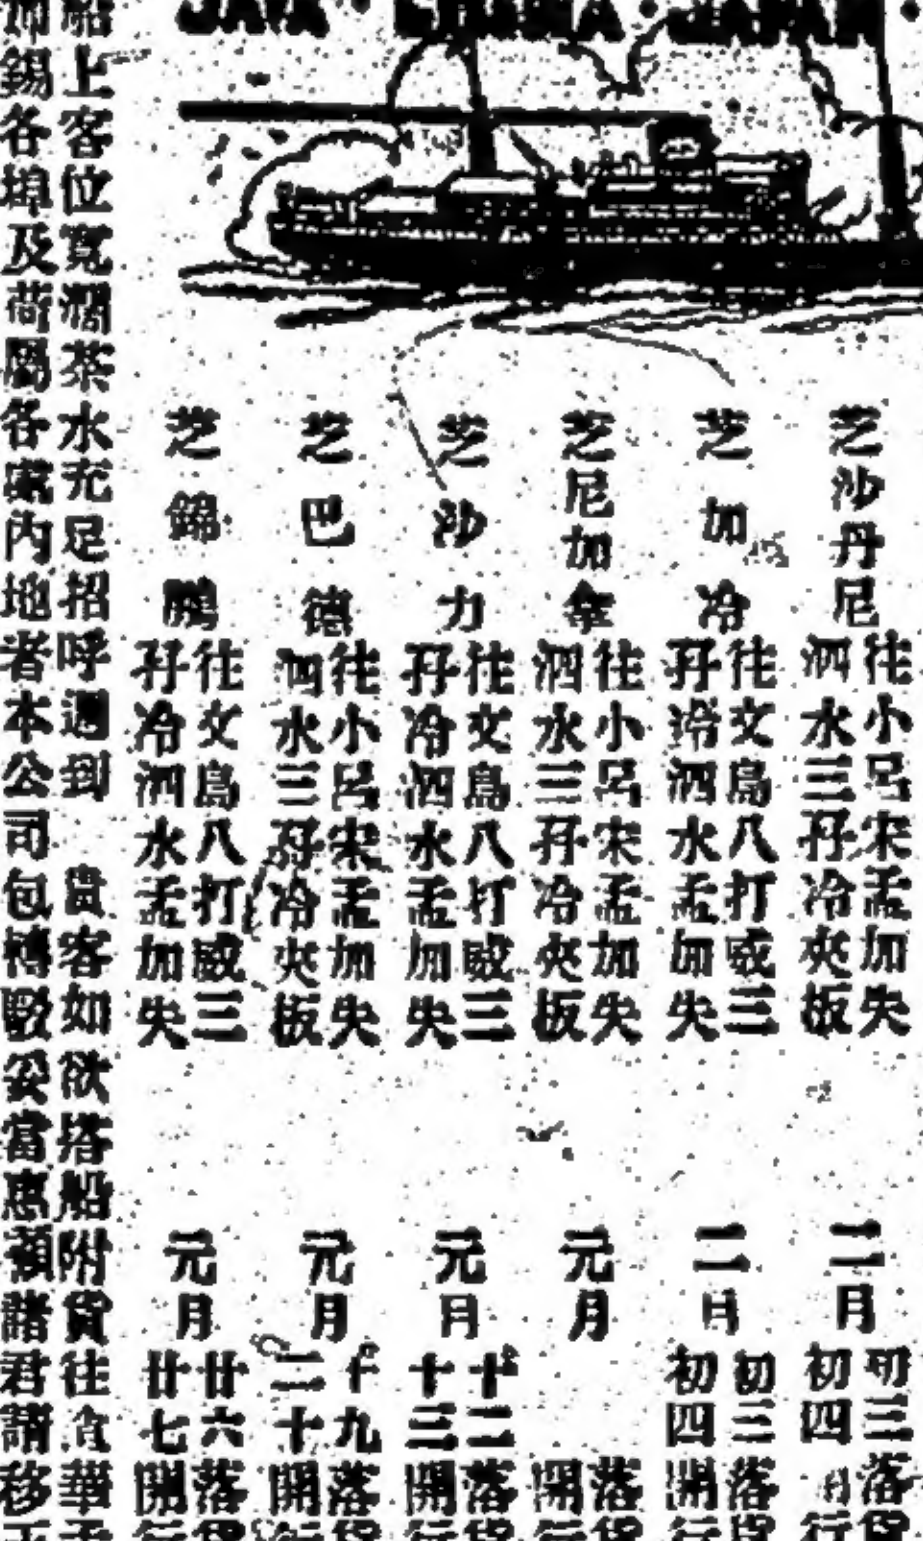 JAVA · CHINA · JAPAN ·
芝沙丹尼
往小呂宋孟加失
泗水三孖冷夾板
二月
初三落貨
初四開行
芝加冷
往文島八打威三
孖冷泗水孟加失
二月
初三落貨
初四開行
芝尼加拿
往小呂宋孟加失
泗水三孖冷夾板
元月
落貨
開行
芝沙力
往文島八打威三
孖冷泗水孟加失
元月
十二落貨
十三開行
芝巴德
往小呂宋孟加失
泗水三孖冷夾板
元月
十九落貨
二十開行
芝錦鵬
往文島八打威三
孖冷泗水孟加失
元月
廿六落貨
廿七開行
船上客位寬濶茶水充足招呼週到 貴客如欲搭船附貨往食華
錫各埠及荷屬各處內地者本公司包轉駁妥當惠顧諸君請移